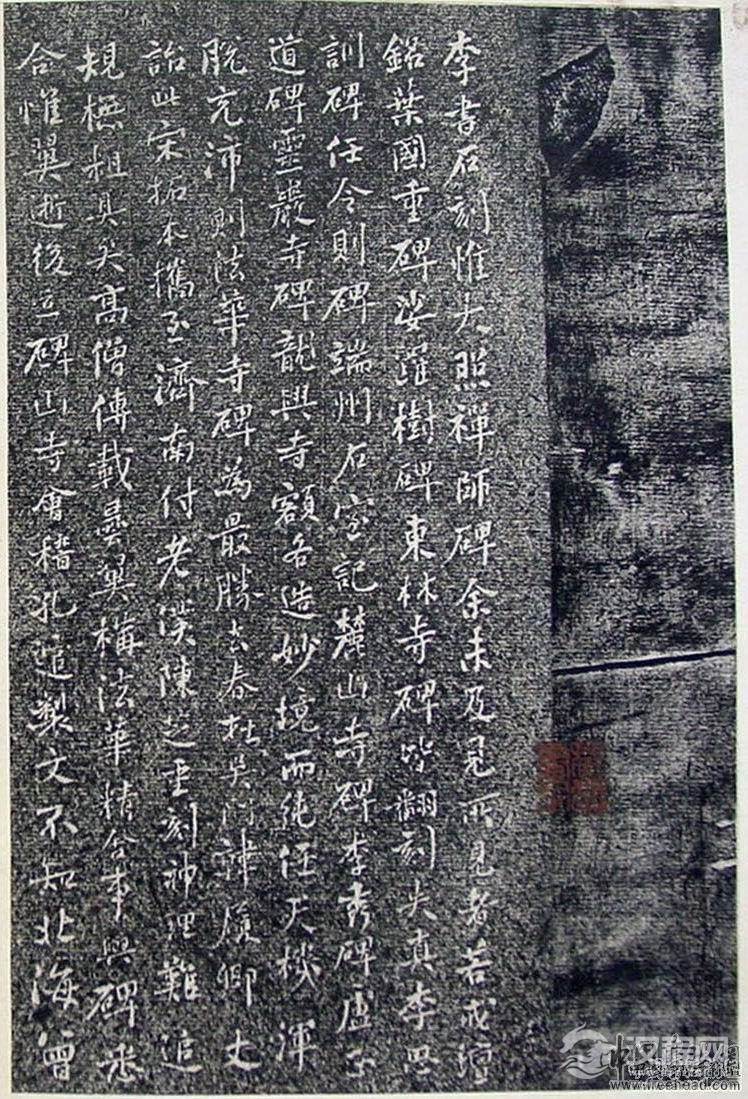 李書石刻惟大照禪師碑余未及見所見者若戒壇
銘葉國重碑娑羅樹碑東林寺碑皆翻刻失真李思
訓碑任令則碑端州石室記麓山寺碑李秀碑盧正
道碑靈巖寺碑龍興寺額各造妙境而純任天機渾
脫充沛則法華寺碑為最勝去春在吳門韓履卿丈
詒此宋拓本攜至濟南付老漢陳芝重刻神理難追
規橅粗具矣高僧傳載曇翼構法華精舍事與碑悉
合惟翼逝後立碑山寺會稽孔逭製文不知北海曾
www.freehead.com